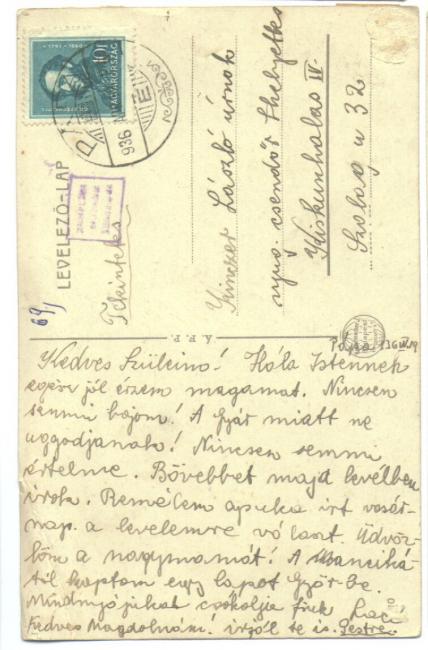 LEVELEZŐ-LAP
MAGYARORSZÁG
936
69/
Tekintetes
László úrnak
nyug. csendőr thelyettes
Kiskunhalas IV.
Szolag u 32
A. F. P.
Pápa 936
Kedves Szüleim! Hála Istennek
egész jól érzem magamat. Nincsen
semmi bajom! A Gyár miatt ne
aggodjanak! Nincsen semmi
értelme. Bővebbet majd levélben
irok. Remélem apuka irt vasár-
nap a levelemre választ. Üdvöz-
löm a nagymamát! A Manciká-
tól kaptam egy lapot Győr-be.
Mindnyájukat csókolja fiuk Laci
Kedves Magdolnám! irjál te is.